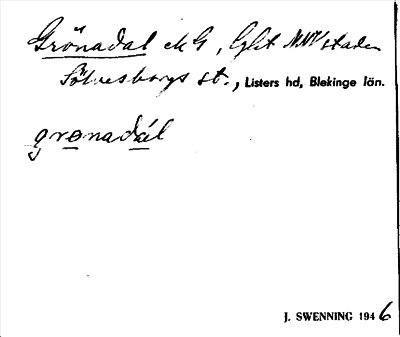 Grönadal ckG, lght NNV staden
Sölvesborgs st., Listers hd, Blekinge län.
gronadál
J. SWENNING 1946